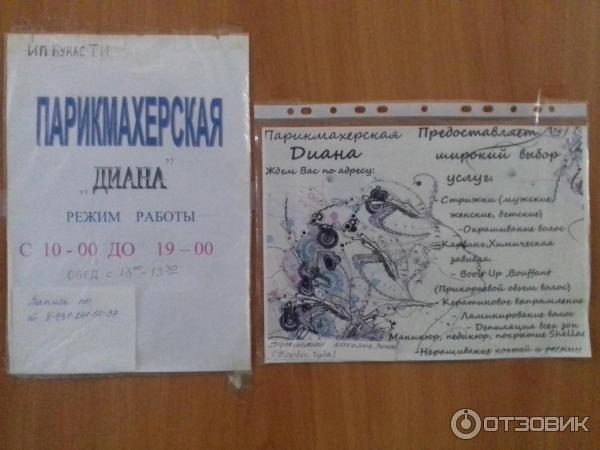 ИП БУКАС Т И
ПАРИКМАХЕРСКАЯ
„ДИАНА"
РЕЖИМ РАБОТЫ
С 10-00 ДО 19-00
ОБЕД с 13⁰⁰-13³⁰
Запись по
Парикмахерская
Диана
Ждем Вас по адресу:
Предоставляет
широкий выбор
услуг:
- Стрижки (мужские,
женские, детские)
- Окрашивание волос
- Карвинг, Химическая
завивка
- Boost Up, Bouffant
(Прикорневой объем волос)
- Кератиновое выпрямление
- Ламинирование волос
- Депиляция всех зон
Маникюр, педикюр, покрытие Shellac
- Наращивание ногтей и ресниц
ОТЗОВИК